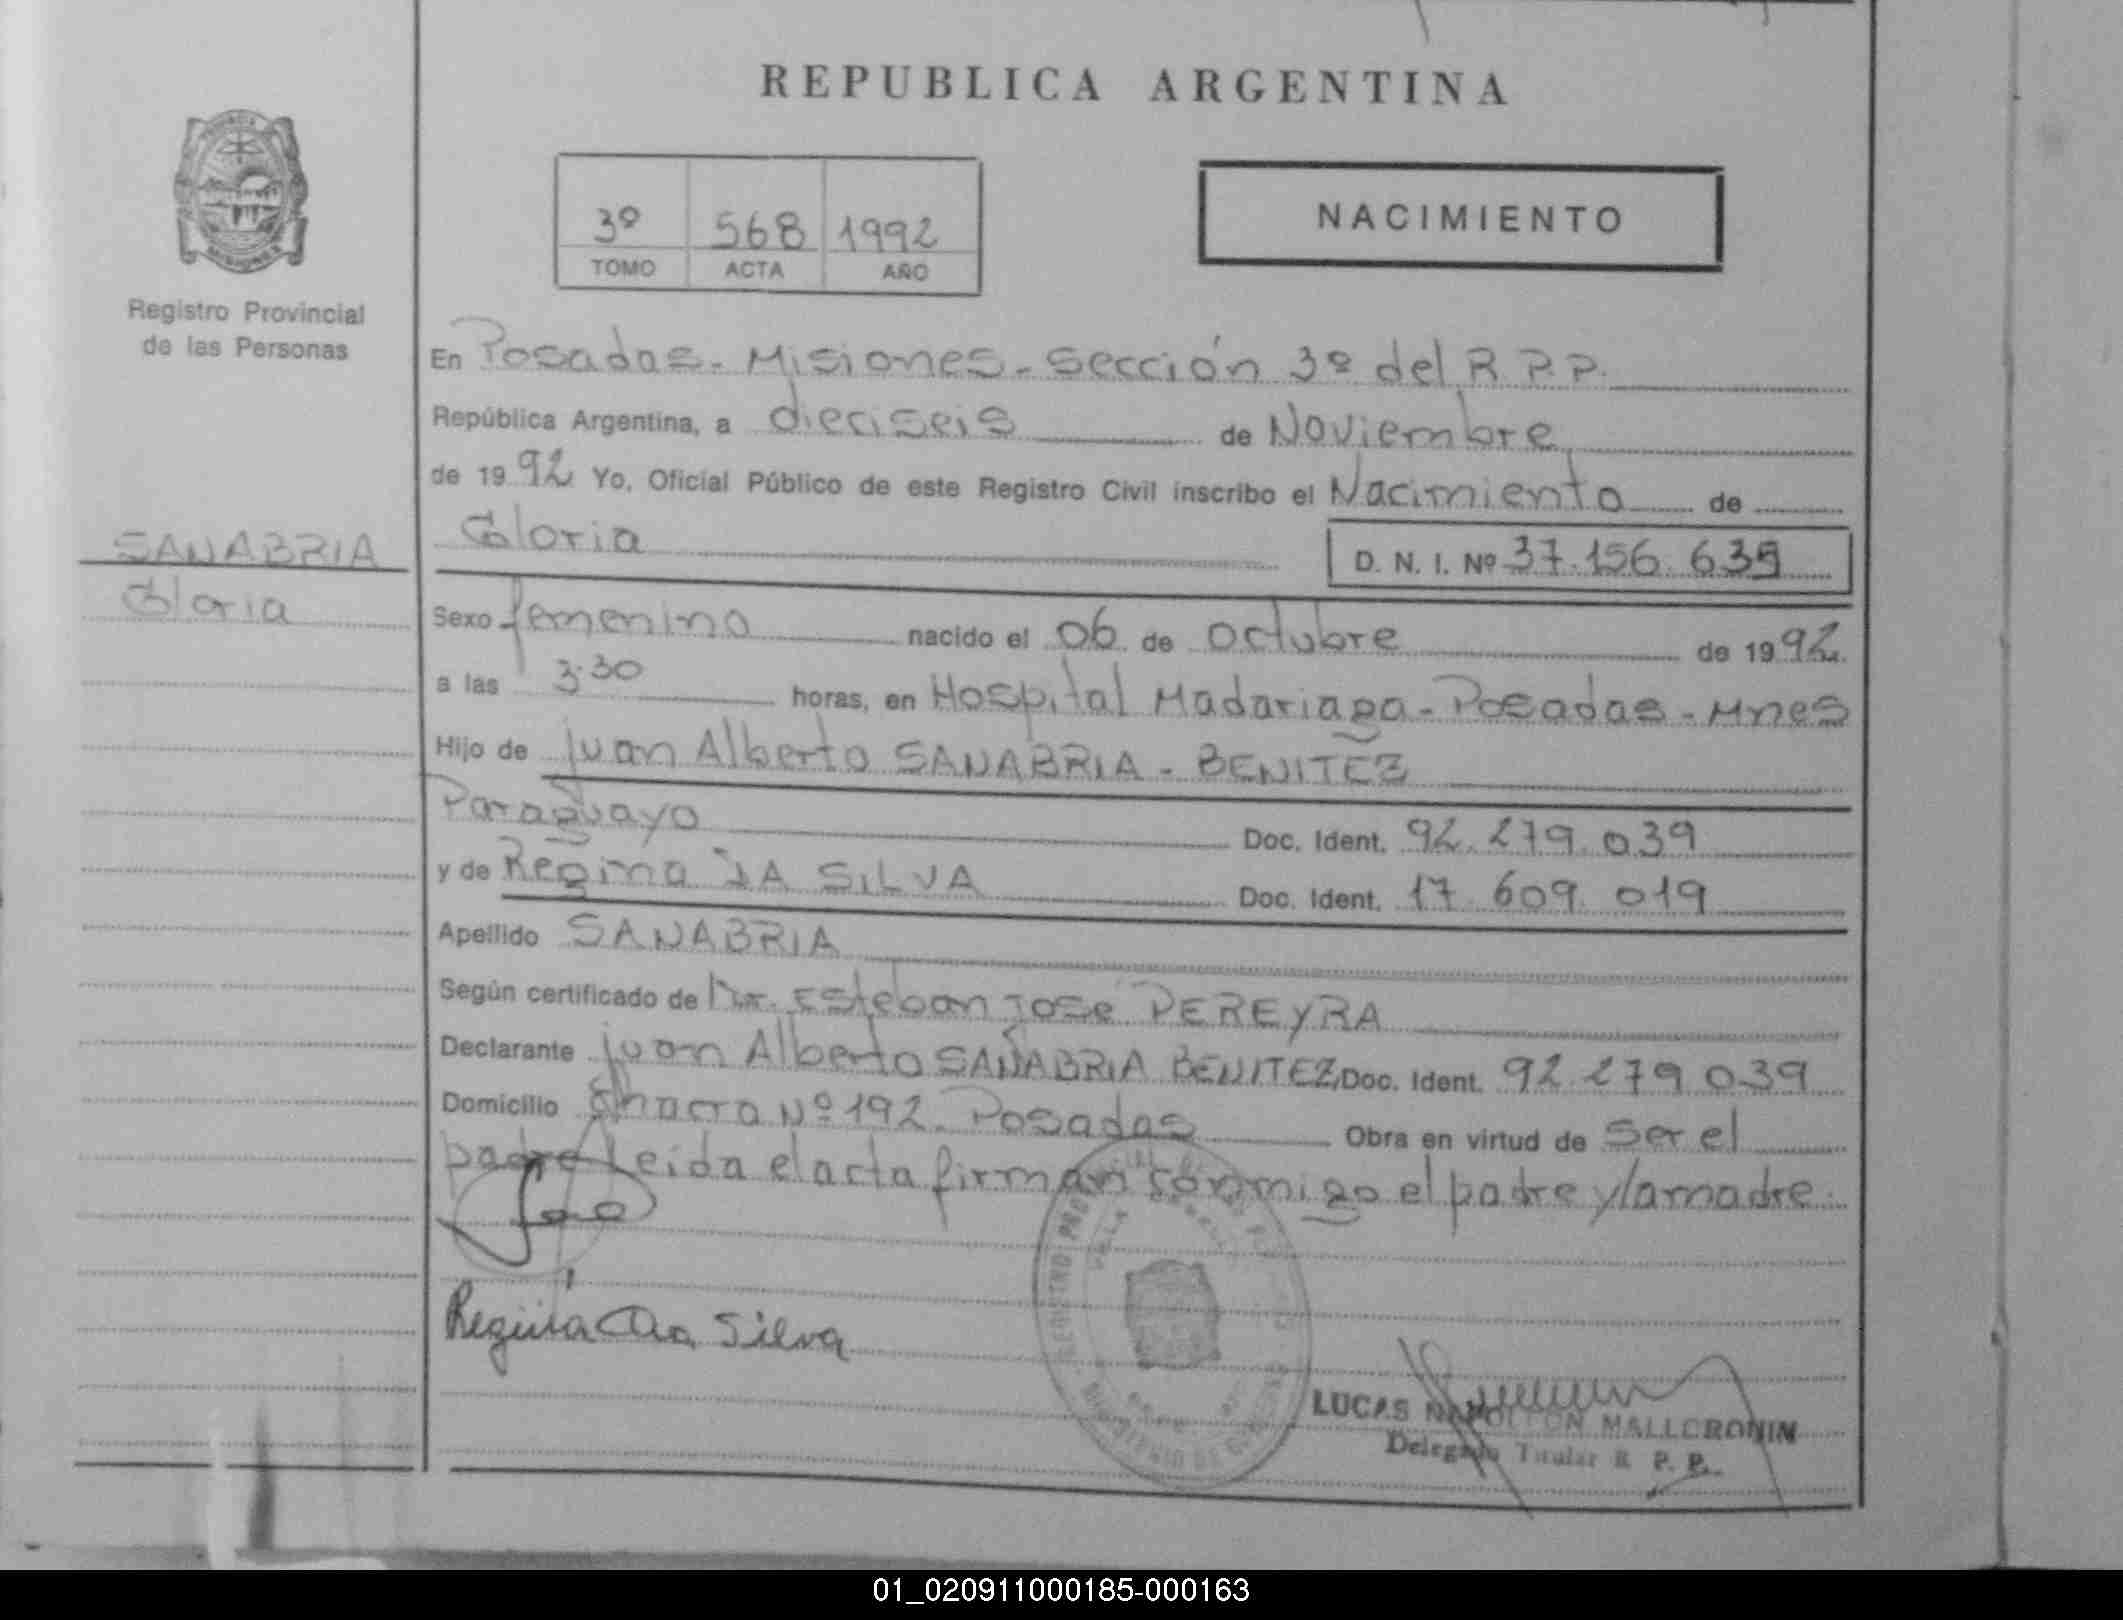 REPUBLICA ARGENTINA
3º 568 1992
TOMO ACTA AÑO
NACIMIENTO
MISIONES
Registro Provincial
de las Personas
SANABRIA
Gloria
En Posadas - Misiones - Sección 3º del R.P.P.
República Argentina, a dieciseis de Noviembre
de 1992 Yo, Oficial Público de este Registro Civil inscribo el Nacimiento de
Gloria D. N. I. Nº 37.156.635
Sexo femenino nacido el 06 de Octubre de 1992
a las 3:30 horas, en Hospital Madariaga - Posadas - Mnes
Hijo de Juan Alberto SANABRIA - BENITEZ
Paraguayo Doc. Ident. 92.279.039
y de Regina DA SILVA Doc. Ident. 17.609.019
Apellido SANABRIA
Según certificado de Dr. Esteban José PEREYRA
Declarante Juan Alberto SANABRIA BENITEZ Doc. Ident. 92.279.039
Domicilio Chacra Nº 192. Posadas Obra en virtud de ser el
padre Leida el acta firman conmigo el padre y la madre.
Regina Da Silva
LUCAS NAPOLEON MALLCRONIN
Delegado Titular R. P. P.
01_020911000185-000163